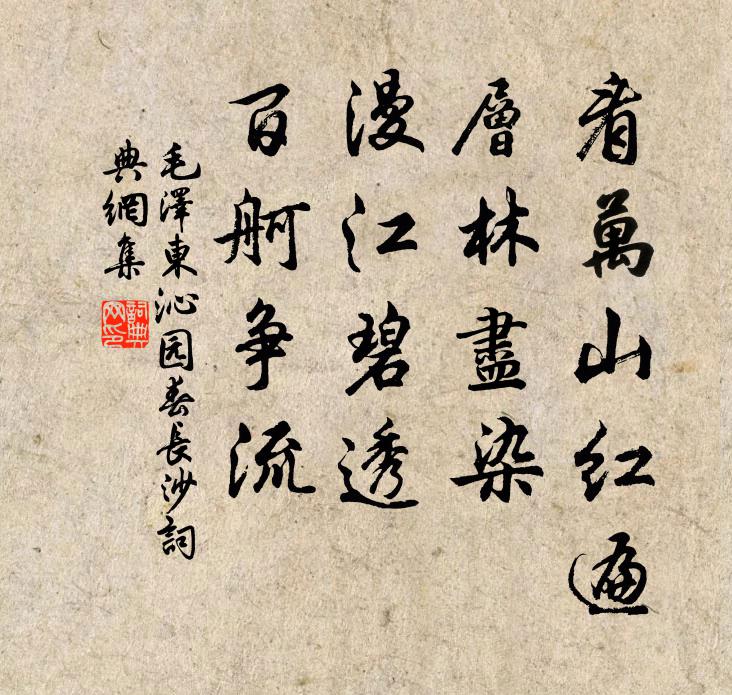 看萬山红遍
層林盡染
漫江碧透
百舸争流
毛澤東沁园春長沙詞
典網集
詞典網印